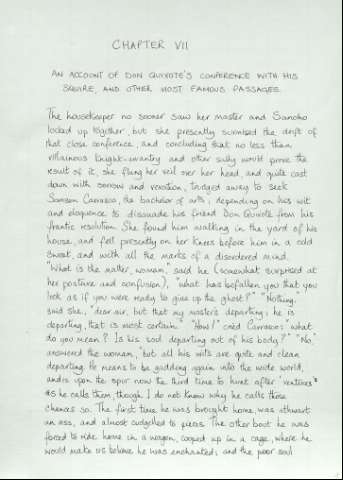 CHAPTER VII
AN ACCOUNT OF DON QUIXOTE'S CONFERENCE WITH HIS
SQUIRE, AND OTHER MOST FAMOUS PASSAGES.
The housekeeper no sooner saw her master and Sancho
locked up together, but she presently surmised the drift of
that close conference, and concluding that no less than
villainous knight-errantry and other sally would prove the
result of it, she flung her veil over her head, and quite cast
down with sorrow and vexation, trudged away to seek
Samson Carrasco, the bachelor of arts; depending on his wit
and eloquence to dissuade his friend Don Quixote from his
frantic resolution. She found him walking in the yard of his
house, and fell presently on her knees before him in a cold
sweat, and with all the marks of a disordered mind.
"What is the matter, woman," said he (somewhat surprised at
her posture and confusion), "what has befallen you that you
look as if you were ready to give up the ghost?" "Nothing,"
said she, "dear sir, but that my master's departing; he is
departing, that is most certain." "How!" cried Carrasco, "what
do you mean? Is his soul departing out of his body?" "No,"
answered the woman, "but all his wits are quite and clean
departing. He means to be gadding again into the wide world,
and is upon the spur now the third time to hunt after ventures
as he calls them, though I do not know why he calls those
chances so. The first time he was brought home, was athwart
an ass, and almost cudgelled to pieces. The other bout he was
forced to ride home in a wagon, cooped up in a cage, where he
would make us believe he was enchanted; and the poor soul